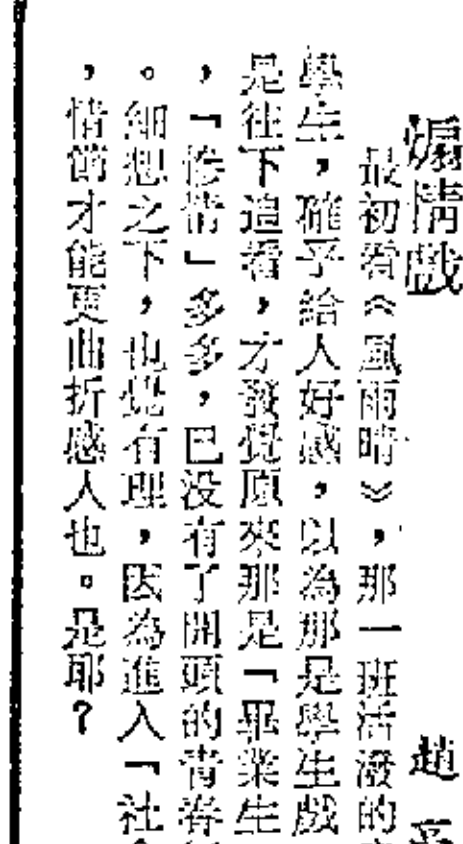 煽情戲
趙
最初看《風雨晴》,那一班活潑的
學生,確乎給人好感,以為那是學生戲
是往下追看,才發覺原來那是「畢業生
,「慘情」多多,已没有了開頭的青春
。細想之下,也覺有理,因為進入「社
,情節才能更曲折感人也。是耶?